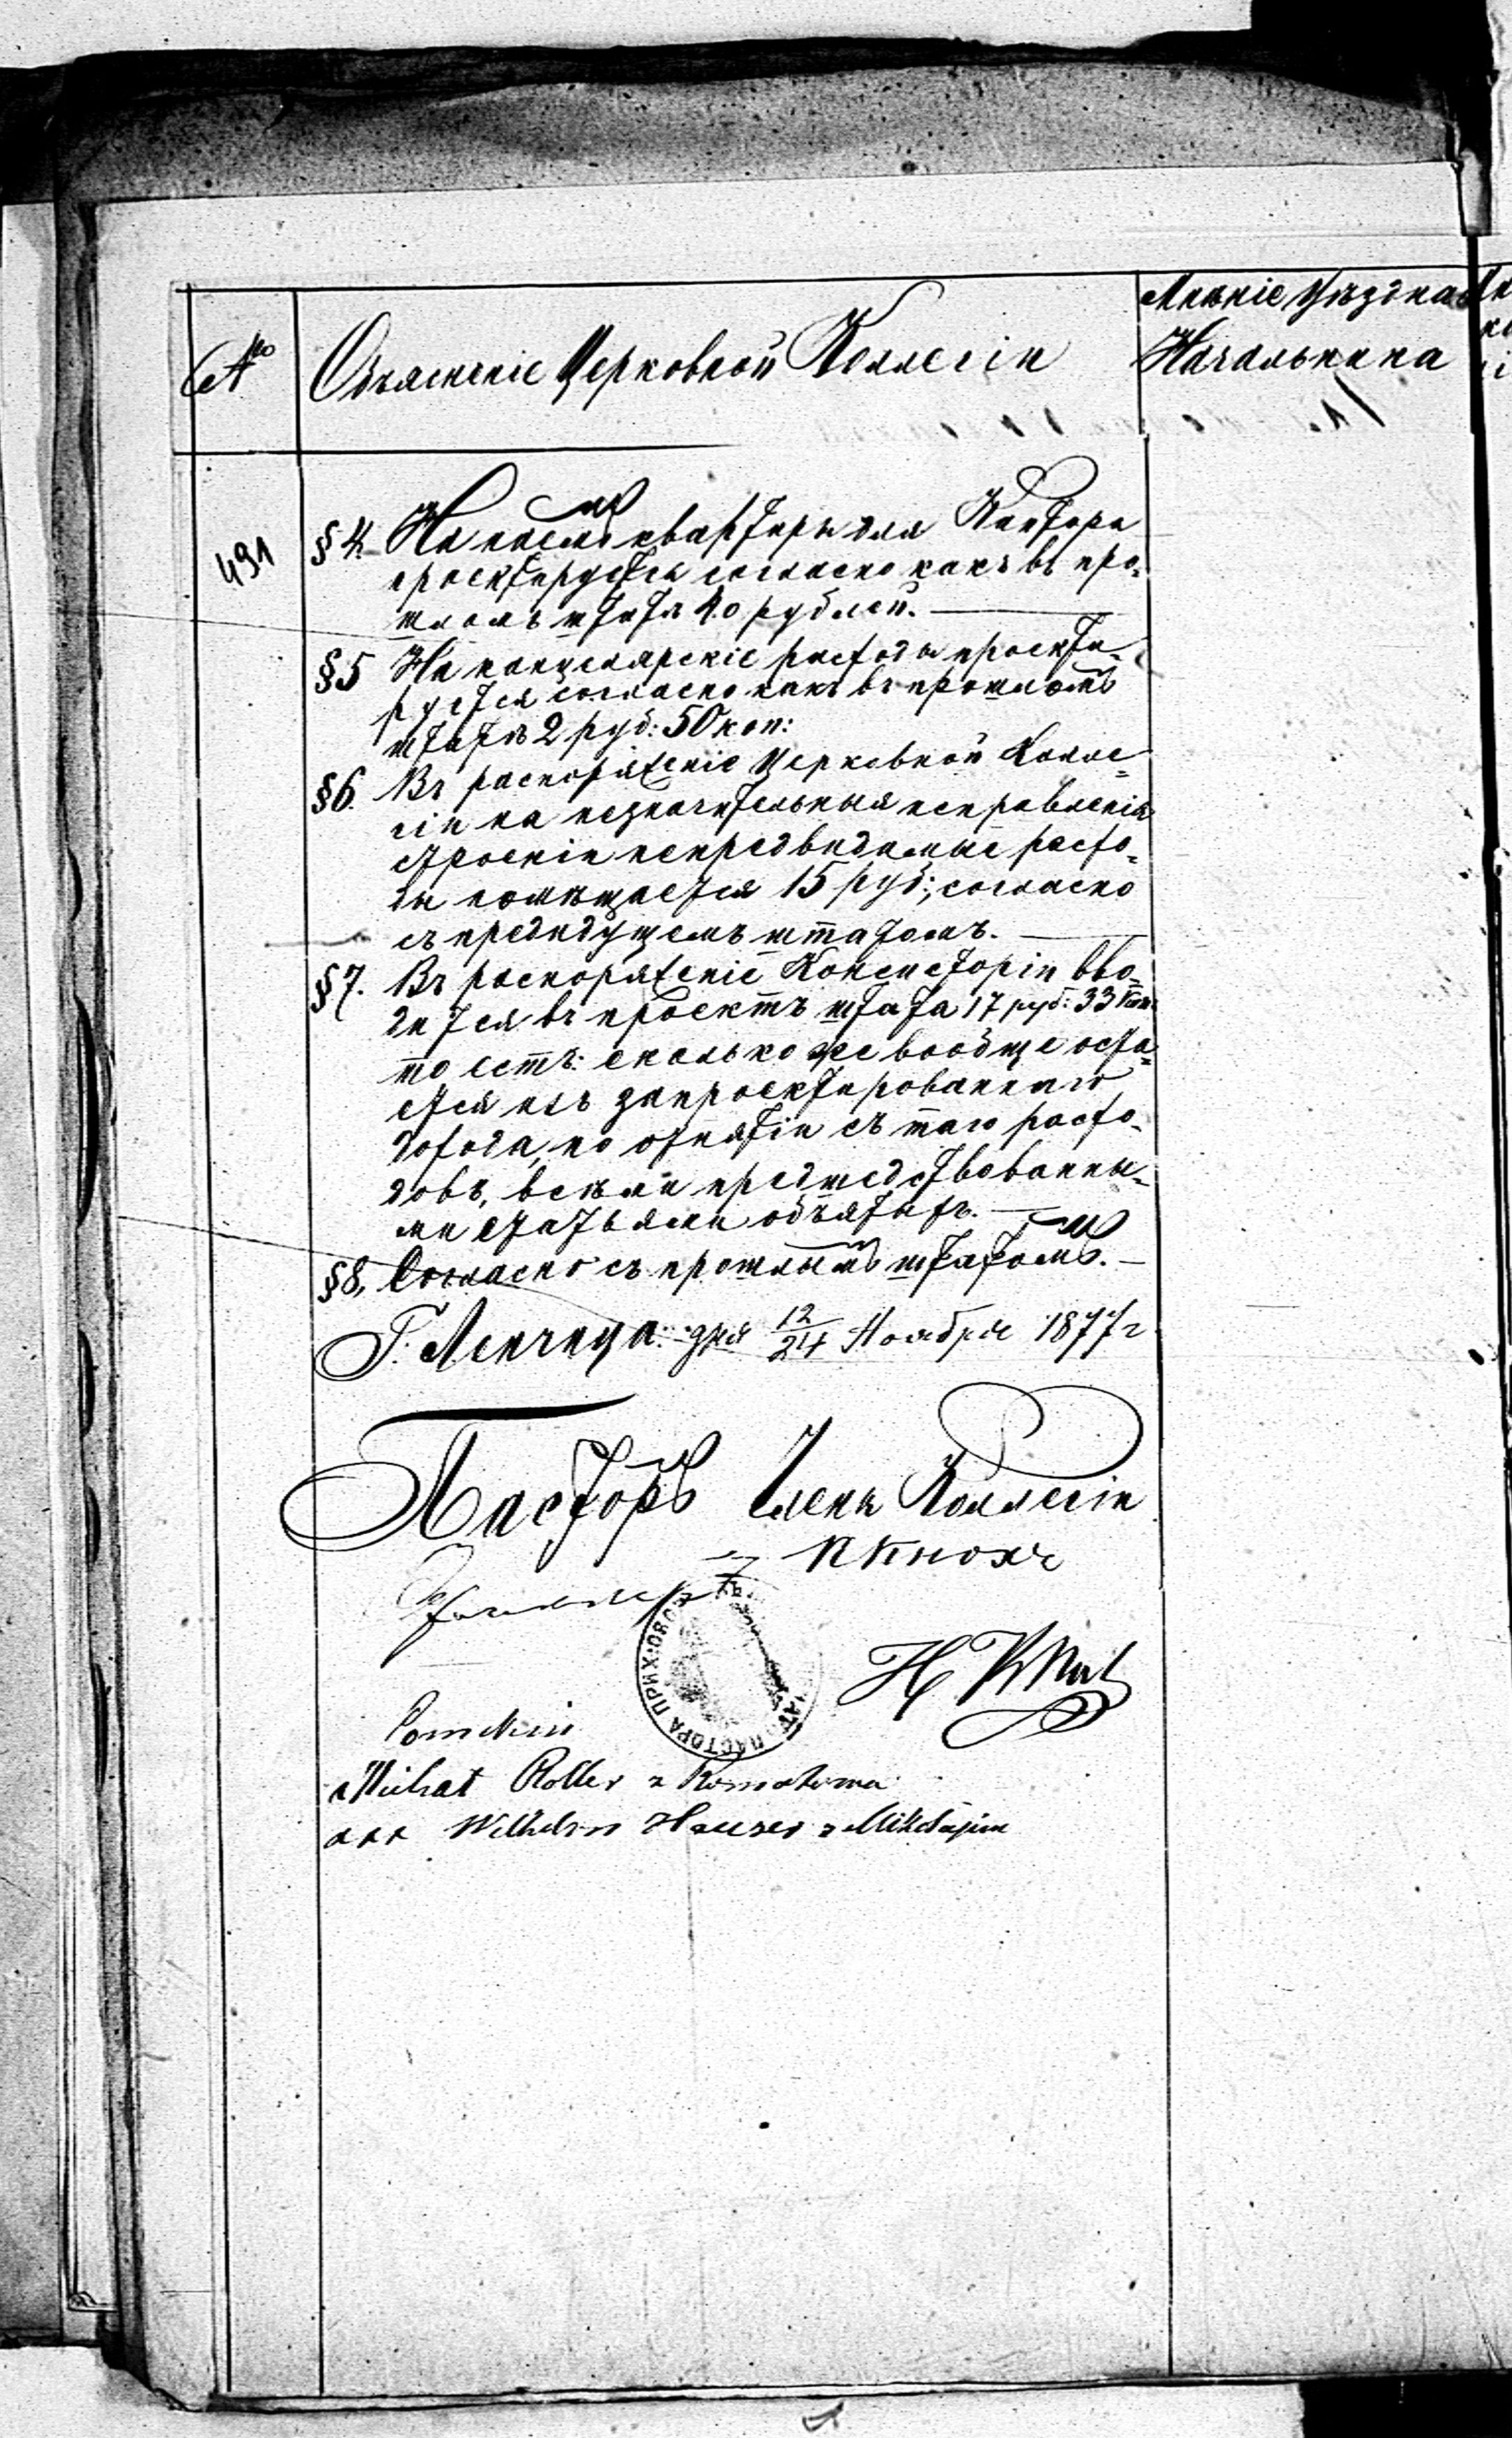 №
Объясненіе Церковной Коллегіи
Мнѣніе Уѣзднаго
Начальника
491
§ 4. На наемъ квартиры для Кантора
проектируется согласно какъ въ про-
шломъ штатѣ 40 рублей.
§ 5 На канцелярскіе расходы проекти-
руется согласно какъ въ прошломъ
штатѣ 2 руб: 50 коп:
§ 6. Въ распоряженіе Церковной Колле=
гіи на незначительныя исправленія
строеніи непредвидимые расхо-
ды помѣщается 15 руб:, согласно
съ предидущемъ штатомъ.
§ 7. Въ распоряженіе Консисторіи вво-
дится въ проектъ штата 17 руб: 33 коп:
то есть: сколько же вообще оста=
ется изъ запроектированнаго
дохода, по отнятіи съ таго расхо-
довъ, всѣми предшедствованны-
ми статьями объятыхъ.
§ 8. Согласно съ прошлымъ штатомъ.
Г. Ленчица: дня 12/24 Ноября 1877 г
Пасторъ Члены Коллегіи
ПАСТОРА ПРИХОВО
Michał Roller z
xxx Wilhelm Hauser z Mikołajewa